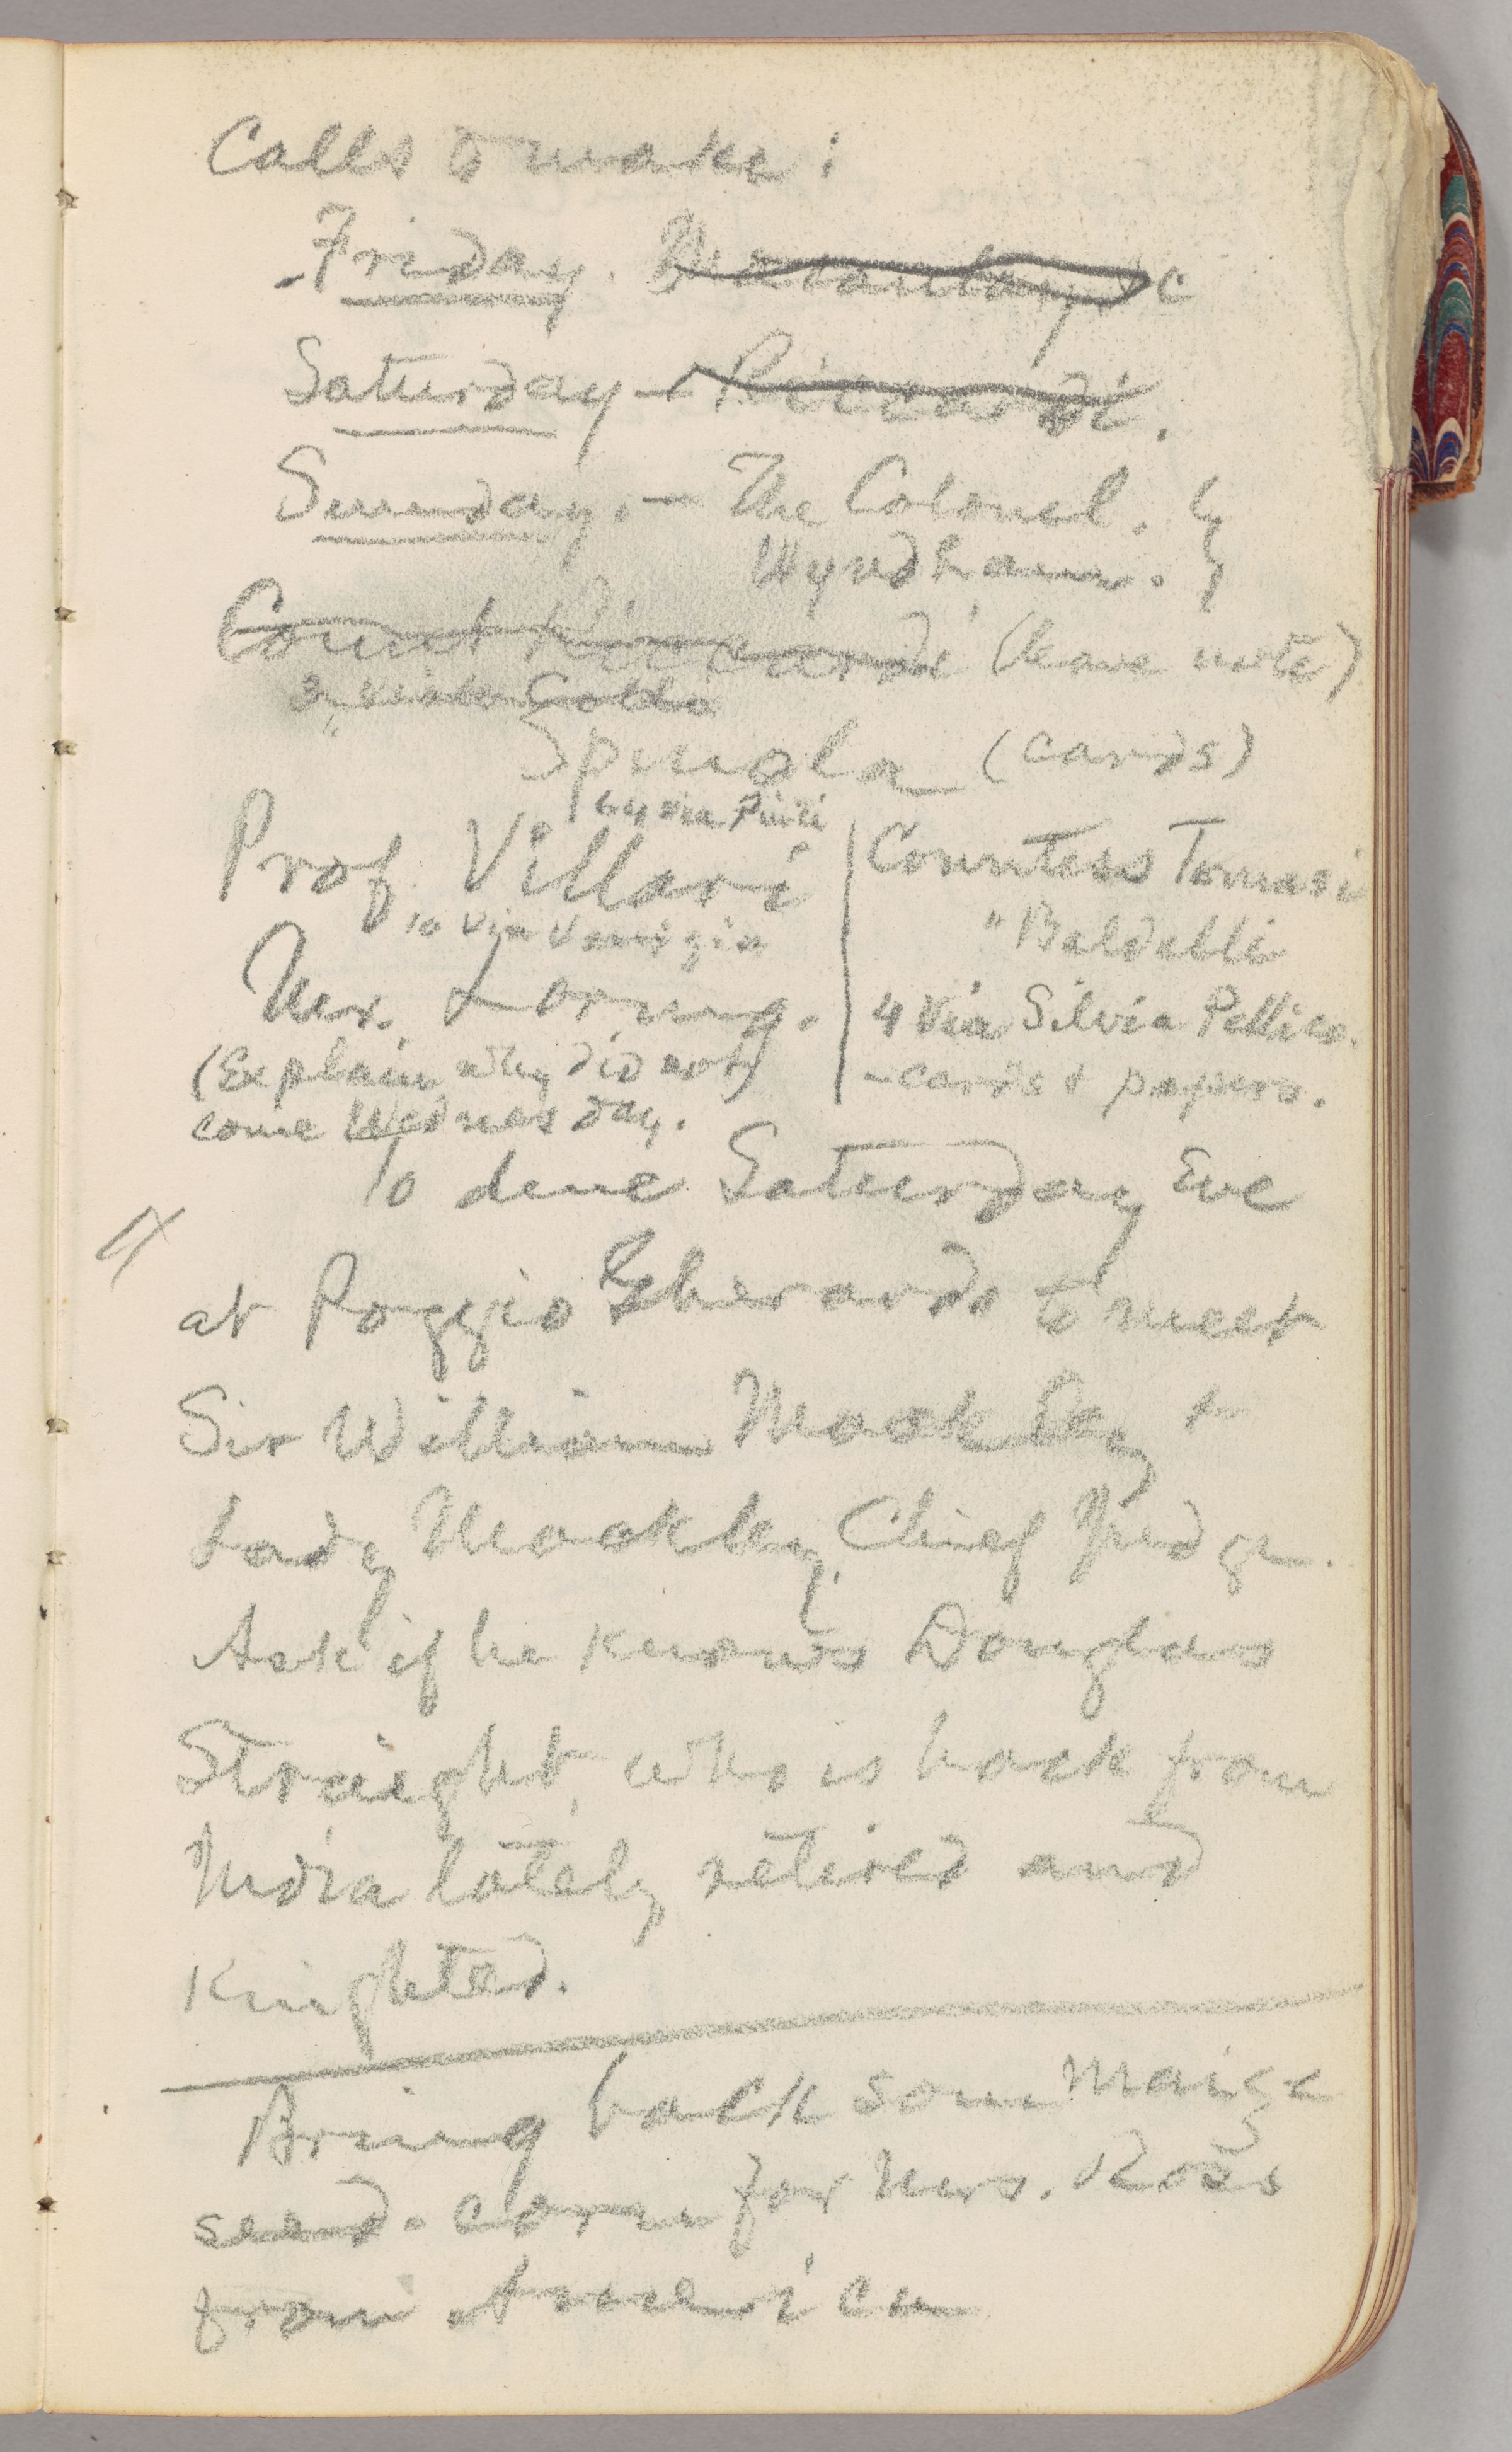 Calls to make:
Friday.
Saturday – Riccardi.
Sunday. – The Colonel.
Wyndham.
Count Riccardi (leave note)
Spinola (cards)
Prof. Villari
10 Via Venezia
Mr. Loring.
(Explain why did not)
come Wednesday.
Countess Tomasi
" Baldelli
4 Via Silvio Pellico.
– cards & papers.
To dine Saturday Eve
at Poggio Gherardo to meet
Sir William Markby &
Lady Markby. Chief Judge.
Ask if he knows Douglas
Straight, who is back from
India lately retired and
Knighted.
Bring back some maize
seed-corn for Mrs. Ross
from America